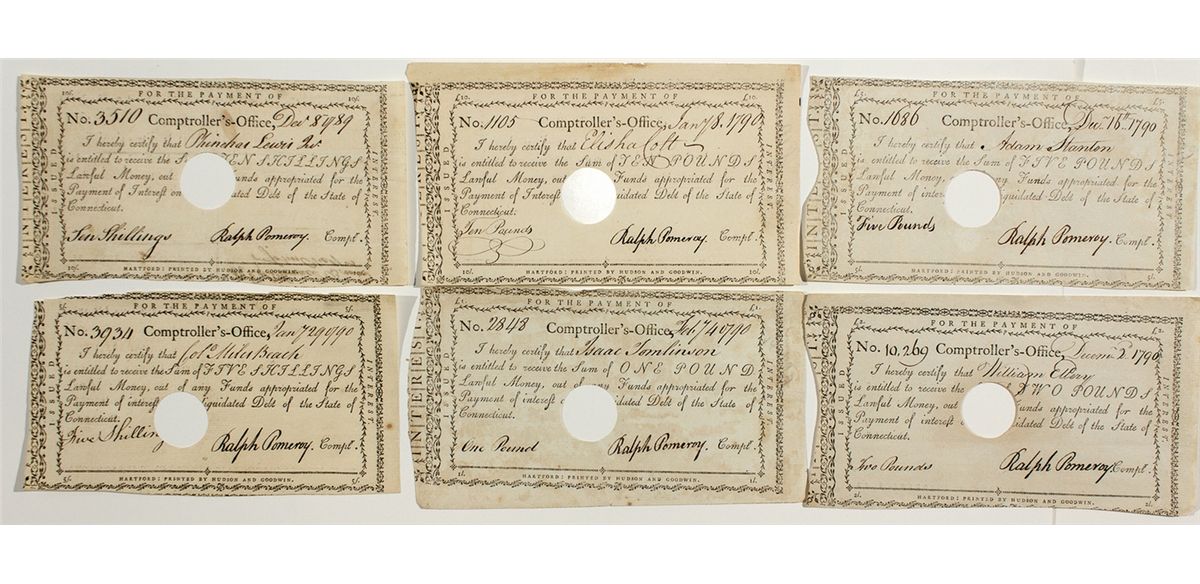 FOR THE PAYMENT OF
10s. 10s.
No. 3510 Comptroller's-Office, Decr 8 1789
I hereby certify that Phinehas Lewis Jr
is entitled to receive the S TEN SHILLINGS
Lawful Money, out unds appropriated for the
Payment of Interest on dated Debt of the State of
Connecticut.
Ten Shillings Ralph Pomeroy. Compt.
HARTFORD: PRINTED BY HUDSON AND GOODWIN.
ISSUED
INTEREST.
FOR THE PAYMENT OF
£10. £10.
No. 1105 Comptroller's-Office, Jany 8. 1790
I hereby certify that Elisha Colt
is entitled to receive the Sum of TEN POUNDS
Lawful Money, out Funds appropriated for the
Payment of Interest on uidated Debt of the State of
Connecticut.
Ten Pounds Ralph Pomeroy. Compt.
10l. 10l.
HARTFORD: PRINTED BY HUDSON AND GOODWIN.
ISSUED
INTEREST.
FOR THE PAYMENT OF
£5. £5.
No. 1686 Comptroller's-Office, Decr. 16th 1790
I hereby certify that Adam Stanton
is entitled to receive the Sum of FIVE POUNDS
Lawful Money, out y Funds appropriated for the
Payment of inter iquidated Debt of the State of
Connecticut.
Five Pounds Ralph Pomeroy. Compt.
5l. 5l.
HARTFORD: PRINTED BY HUDSON AND GOODWIN.
ISSUED
INTEREST.
FOR THE PAYMENT OF
5s. 5s.
No. 3934 Comptroller's-Office, Jany 29 1790
I hereby certify that Colo Miles Beach
is entitled to receive the Sum of FIVE SHILLINGS
Lawful Money, out of any Funds appropriated for the
Payment of interest iquidated Debt of the State of
Connecticut.
Five Shilling Ralph Pomeroy. Compt.
5s. 5s.
HARTFORD: PRINTED BY HUDSON AND GOODWIN.
ISSUED
INTEREST.
FOR THE PAYMENT OF
£1. £1.
No. 2848 Comptroller's-Office, Feby 4 1790
I hereby certify that Isaac Tomlinson
is entitled to receive the Sum of ONE POUND
Lawful Money, out of any Funds appropriated for the
Payment of interest o idated Debt of the State of
Connecticut.
One Pound Ralph Pomeroy. Compt.
1l. 1l.
HARTFORD: PRINTED BY HUDSON AND GOODWIN.
ISSUED
INTEREST.
FOR THE PAYMENT OF
£2. £2.
No. 10,269 Comptroller's-Office, Decem 2 1790
I hereby certify that William Ellery
is entitled to receive the TWO POUNDS
Lawful Money, out Funds appropriated for the
Payment of interest o idated Debt of the State of
Connecticut.
Two Pounds Ralph Pomeroy Compt.
2l. 2l.
HARTFORD: PRINTED BY HUDSON AND GOODWIN.
ISSUED
INTEREST.